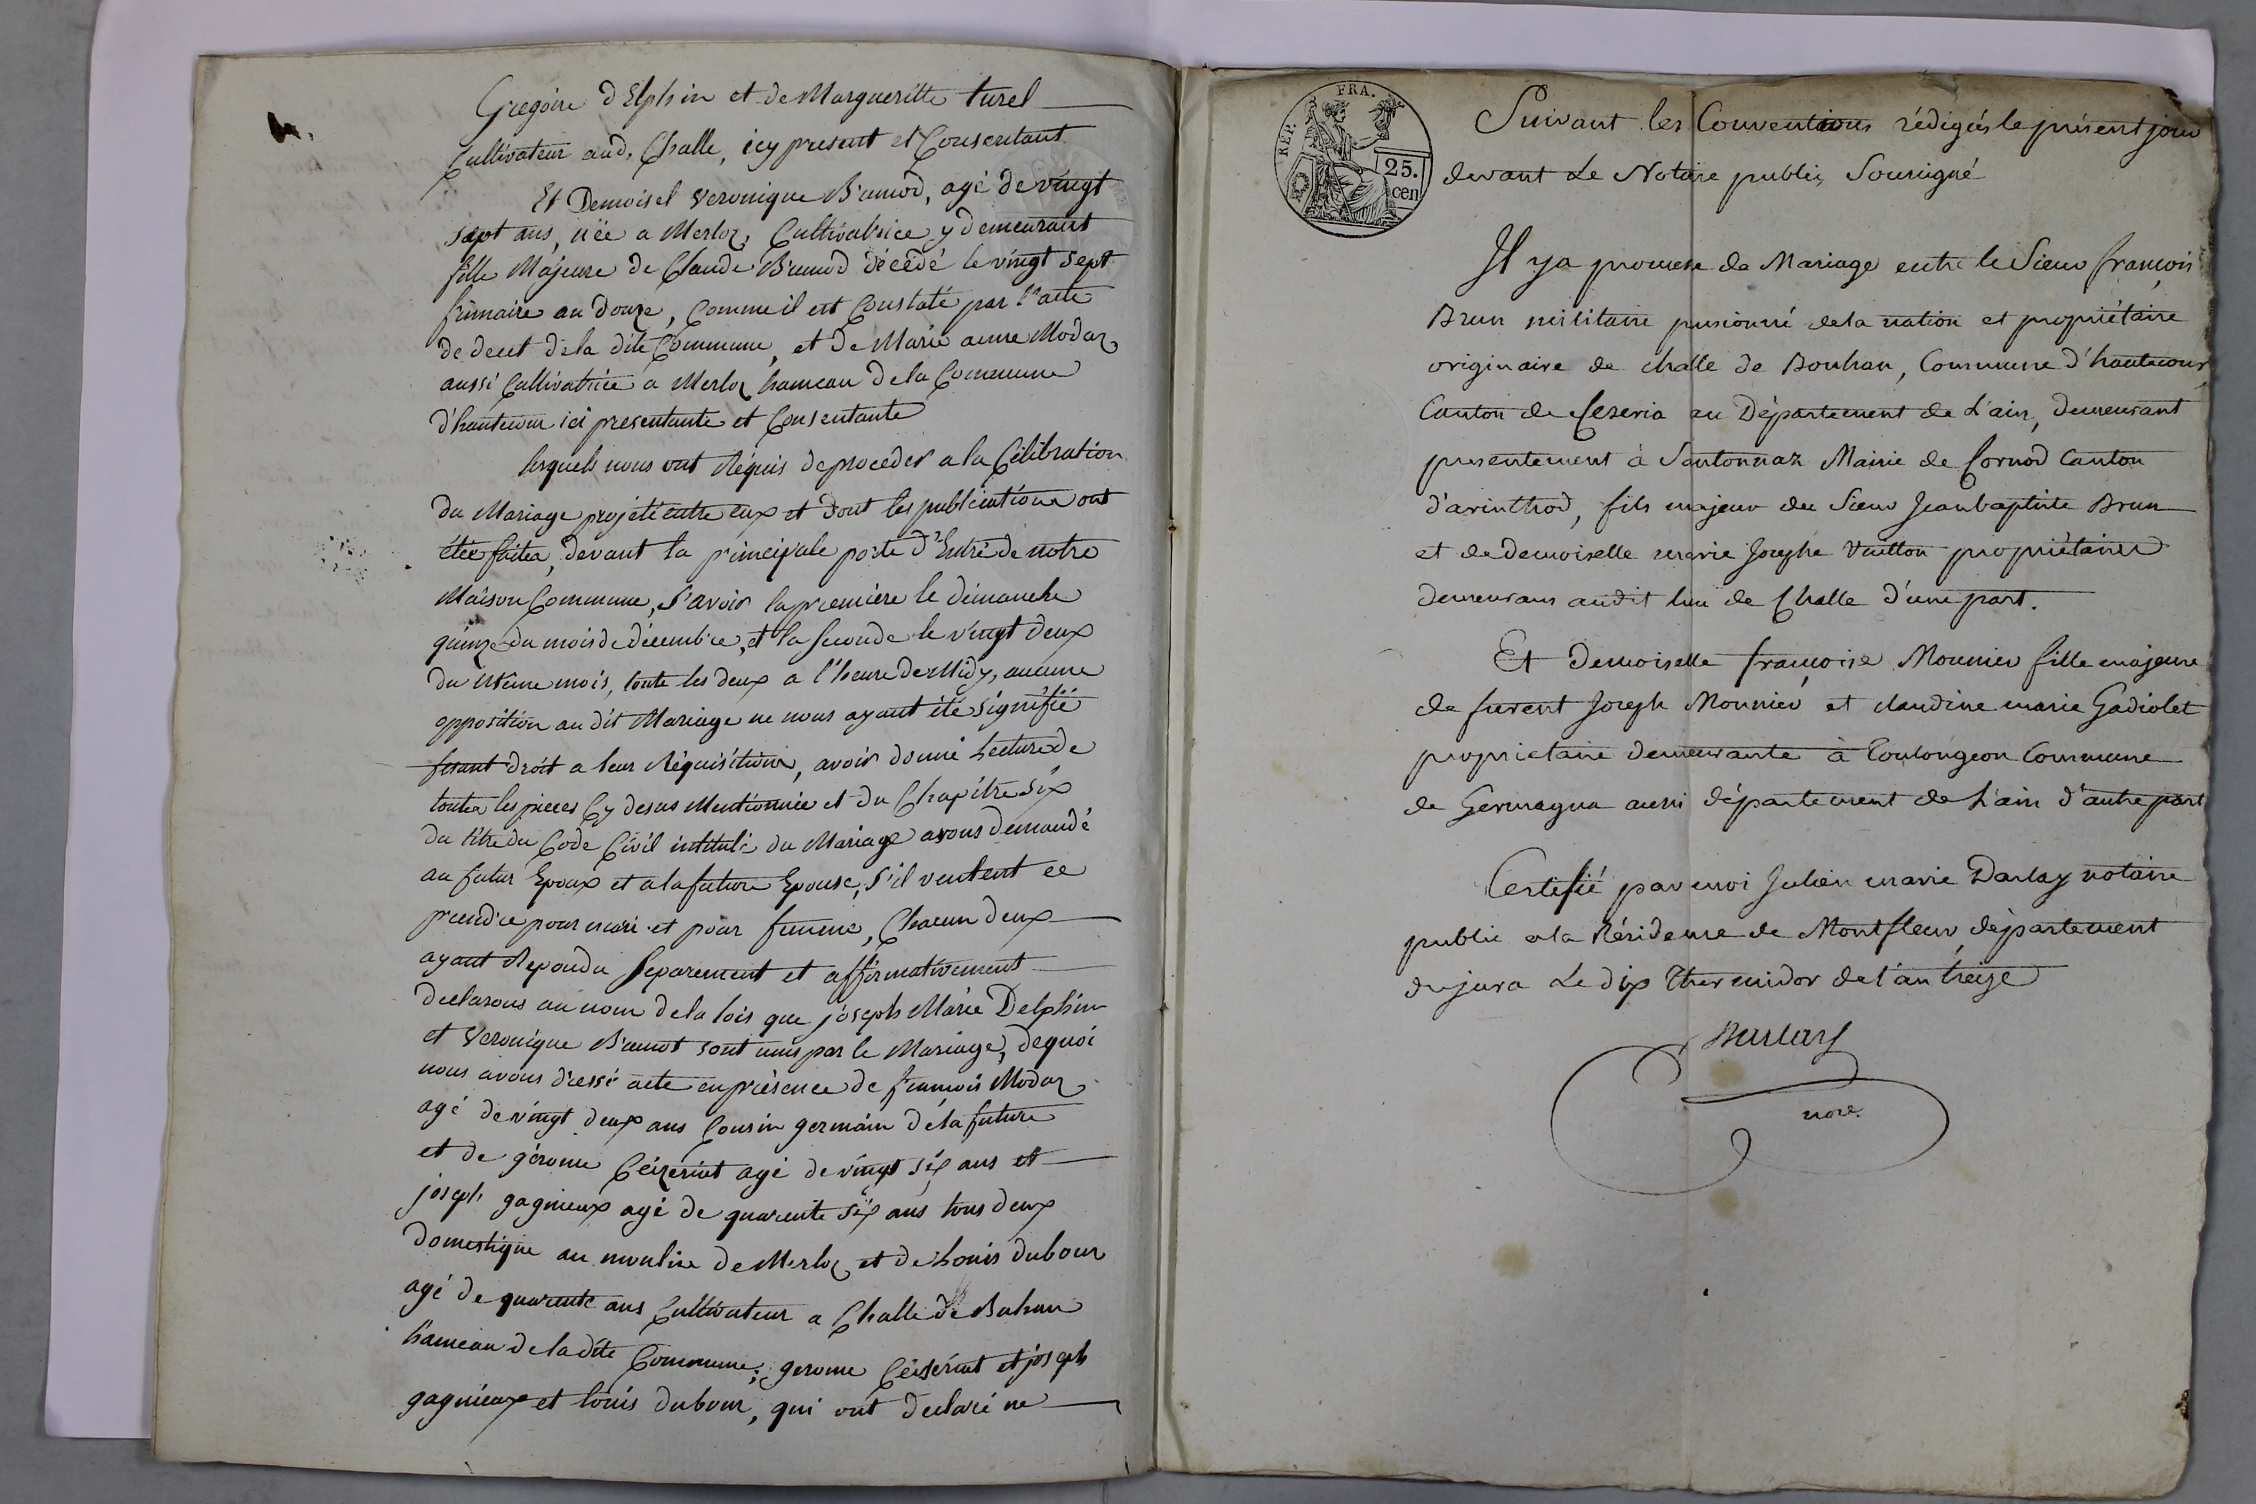 Gregoire d'Elphin et de Margueritte turel
Cultivateur aud. Challe, icy present et Consentant
Et Demoisel Veronique Brunod, agé de vingt
sept ans, née a Merloz, Cultivatrice y demeurant
fille Majeure de Claude Brunod décédé le vingt sept
frimaire an douze, comme il est Constaté par l'acte
de decet de la dite Commune, et de Marie anne Modaz
aussi Cultivatrice a Merloz hameau de la Commune
d'hautecour ici presentante et Consentante
lesquels nous ont Réquis de procéder a la Célébration
du Mariage projeté entre eux et dont les publications ont
étée faitea, devant la principale porte d'Entré de notre
Maison Commune, S'avoir la premiere le dimanche
quinze du mois de decembre, et la seconde le vingt deux
du Même mois, toute les deux a l'heure de Midy, aucune
opposition au dit Mariage ne nous ayant été signifié
fesant droit a leur Réquisition, avoir donné Lecture de
toutea les pieces Cy desus Mentionnée et du Chapitre six
du titre du Code Civil intitulé du Mariage avons demandé
au futur Epoux et a la future Epouse, S'il veulent ce
prendre pour mari et pour femme, Chacun deux
ayant Repondu Separement et affirmativement
declarons au nom de la lois que joseph Marie Delphin
et Veronique Brunot sont unis par le Mariage, de quoi
nous avons dressé acte en présence de francois Modaz
agé de vingt deux ans Cousin germain de la future
et de gérome Ceizeriat agé de vingt six ans et
joseph gagnieux agé de quarente six ans tous deux
domestique au moulin de Merloz et de Louis dubour
agé de quarente ans Cultivateur a Challe de Bohan
hameau de la dite Commune; gerome Ceiseriat et joseph
gagnieux et louis dubour, qui ont declaré ne
REP. FRA.
25.
cen
Suivant les Conventions rédigées le présent jour
devant Le Notaire public, Sousigné
Il y a promesse de Mariage entre le Sieur françois
Brun militaire pensionné de la nation et propriétaire
originaire de challe de Bouhan, Commune d'hautecour,
Canton de Ceseria au Département de L'ain, Demeurant
presentement à Santonnaz Mairie de Cornod Canton
d'arinthod, fils majeur du Sieur Jeanbaptiste Brun
et de demoiselle marie Josephe Vuitton propriétaires
demeurans audit lieu de Challe d'une part.
Et Demoiselle françoise Mounier fille majeure
de furent Joseph Mounier et claudine marie Gadiolet
proprietaire demeurante à Toulongeon Commune
de Germagna aussi département de L'ain d'autre part
Certifié par moi Julien marie Darlay notaire
public a la Résidence de Montfleur département
du jura Le dix Thermidor de l'an treize
Darlay
nore.